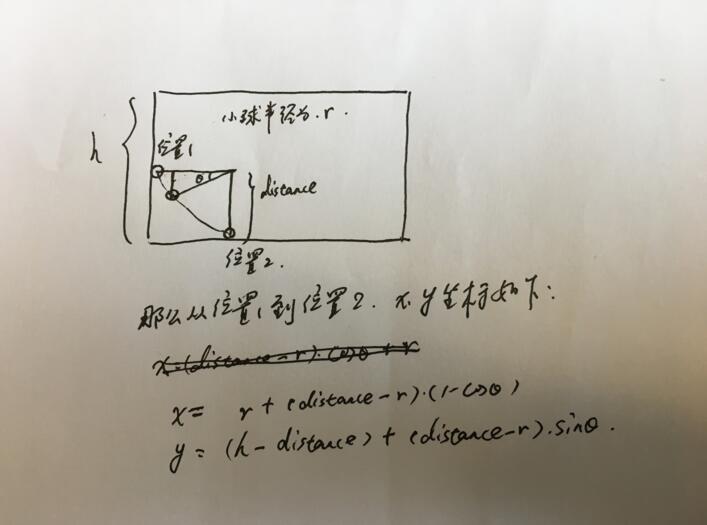 小球半径为.r.
h
位置1
θ
distance
位置2.
那么从位置1到位置2. x.y坐标如下:
x=(distance-r)·cosθ+r
x= r+(distance-r)·(1-cosθ)
y=(h-distance)+(distance-r)·sinθ.